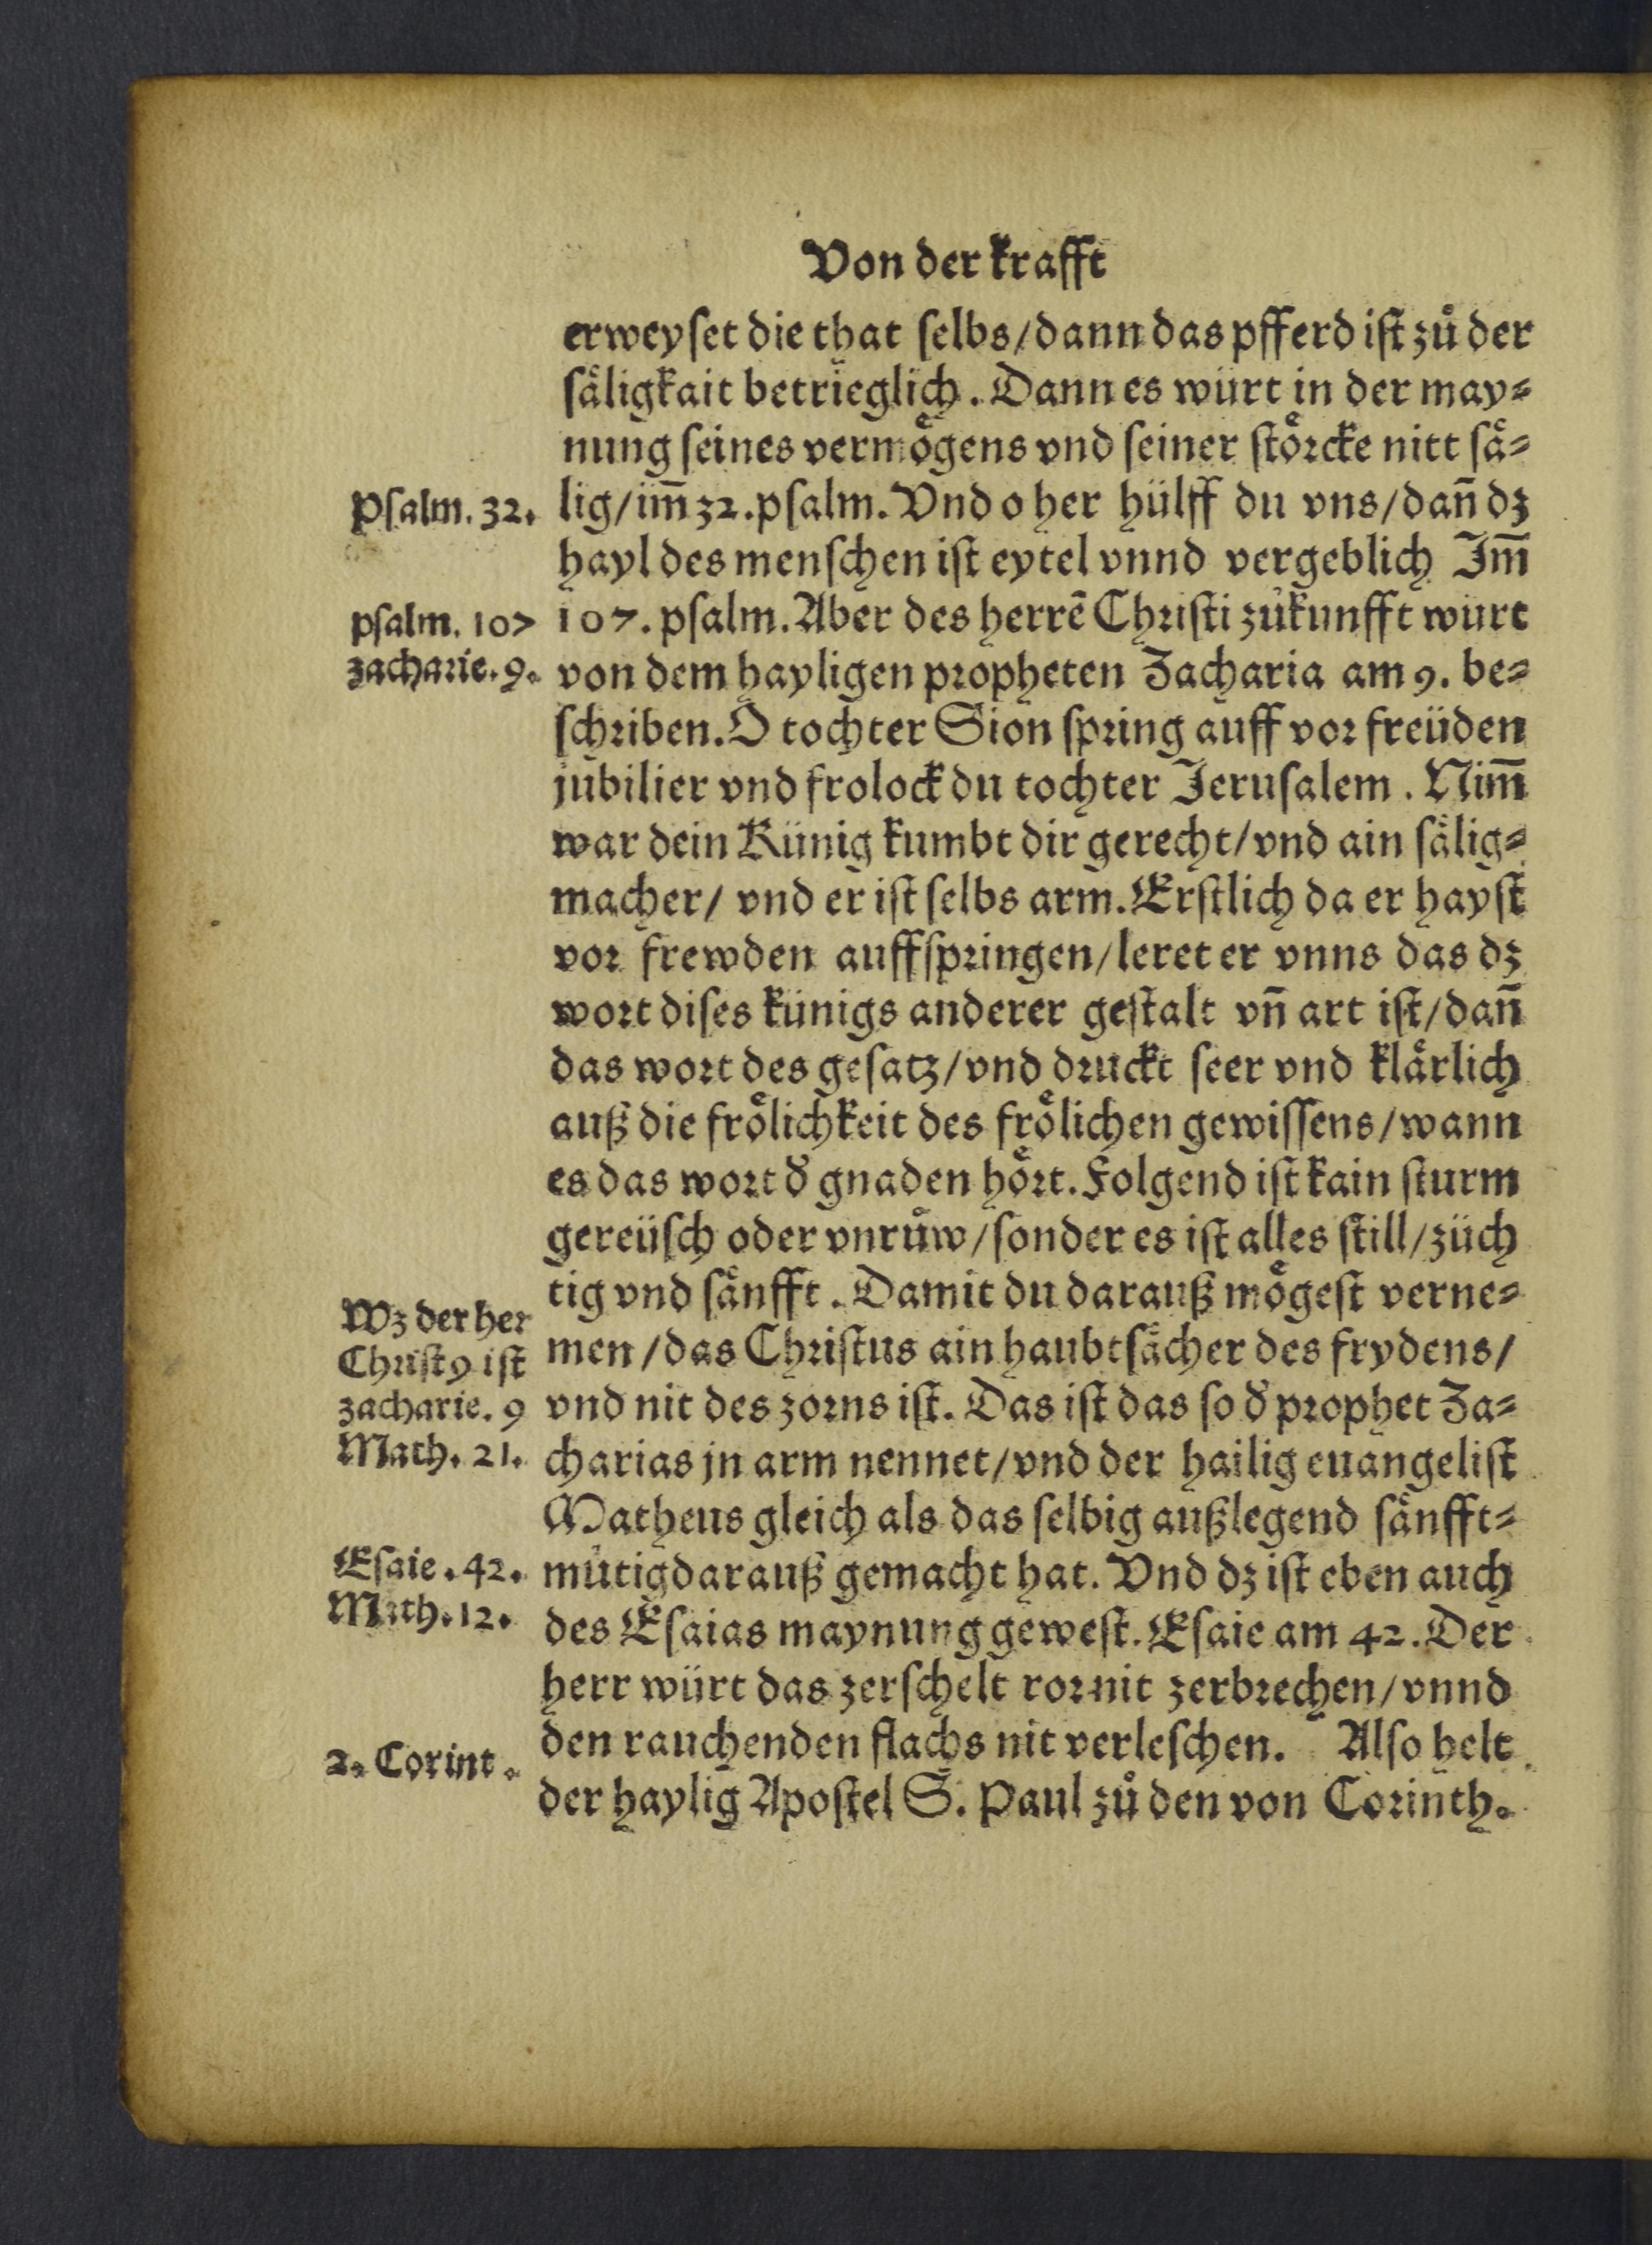 Von der krafft
erweyſet die that ſelbs/dann das pfferd iſt zů der
ſäligkait betrieglich. Dann es würt in der may⸗
nung ſeines vermögens vnd ſeiner ſtörcke nitt ſä⸗
Pſalm. 32.
lig/im̄ 32. pſalm. Vnd o her hülff du vns/dañ dz
hayl des menſchen iſt eytel vnnd vergeblich Im̄
pſalm. 107
107. pſalm. Aber des herrē Chriſti zůkunfft würt
zacharie. 9.
von dem hayligen propheten Zacharia am 9. be⸗
ſchriben. O tochter Sion ſpring auff vor freüden
jubilier vnd frolock du tochter Jeruſalem. Nim̄
war dein Künig kumbt dir gerecht/vnd ain ſälig⸗
macher/ vnd er iſt ſelbs arm. Erſtlich da er hayſt
vor frewden auffſpringen/leret er vnns das dz
wort diſes künigs anderer geſtalt vñ art iſt/dañ
das wort des geſatz/vnd druckt ſeer vnd klärlich
auß die frölichkeit des frölichen gewiſſens/wann
es das wort d̕ gnaden hört. Folgend iſt kain ſturm
gereüſch oder vnrůw/ſonder es iſt alles ſtill/züch
tig vnd ſänfft. Damit du darauß mögeſt verne⸗
Wz der her
men/das Chriſtus ain haubtſächer des frydens/
Chriſtꝰ iſt
zacharie. 9
vnd nit des zorns iſt. Das iſt das ſo d̕ prophet Za⸗
Math. 21.
charias jn arm nennet/vnd der hailig euangeliſt
Matheus gleich als das ſelbig außlegend ſänfft⸗
Eſaie. 42.
mütig darauß gemacht hat. Vnd dz iſt eben auch
Math. 12.
des Eſaias maynung geweſt. Eſaie am 42. Der
herr würt das zerſchelt ror nit zerbrechen/vnnd
den rauchenden flachs nit verleſchen. Alſo helt
2. Corint.
der haylig Apoſtel S. Paul zů den von Corinth.